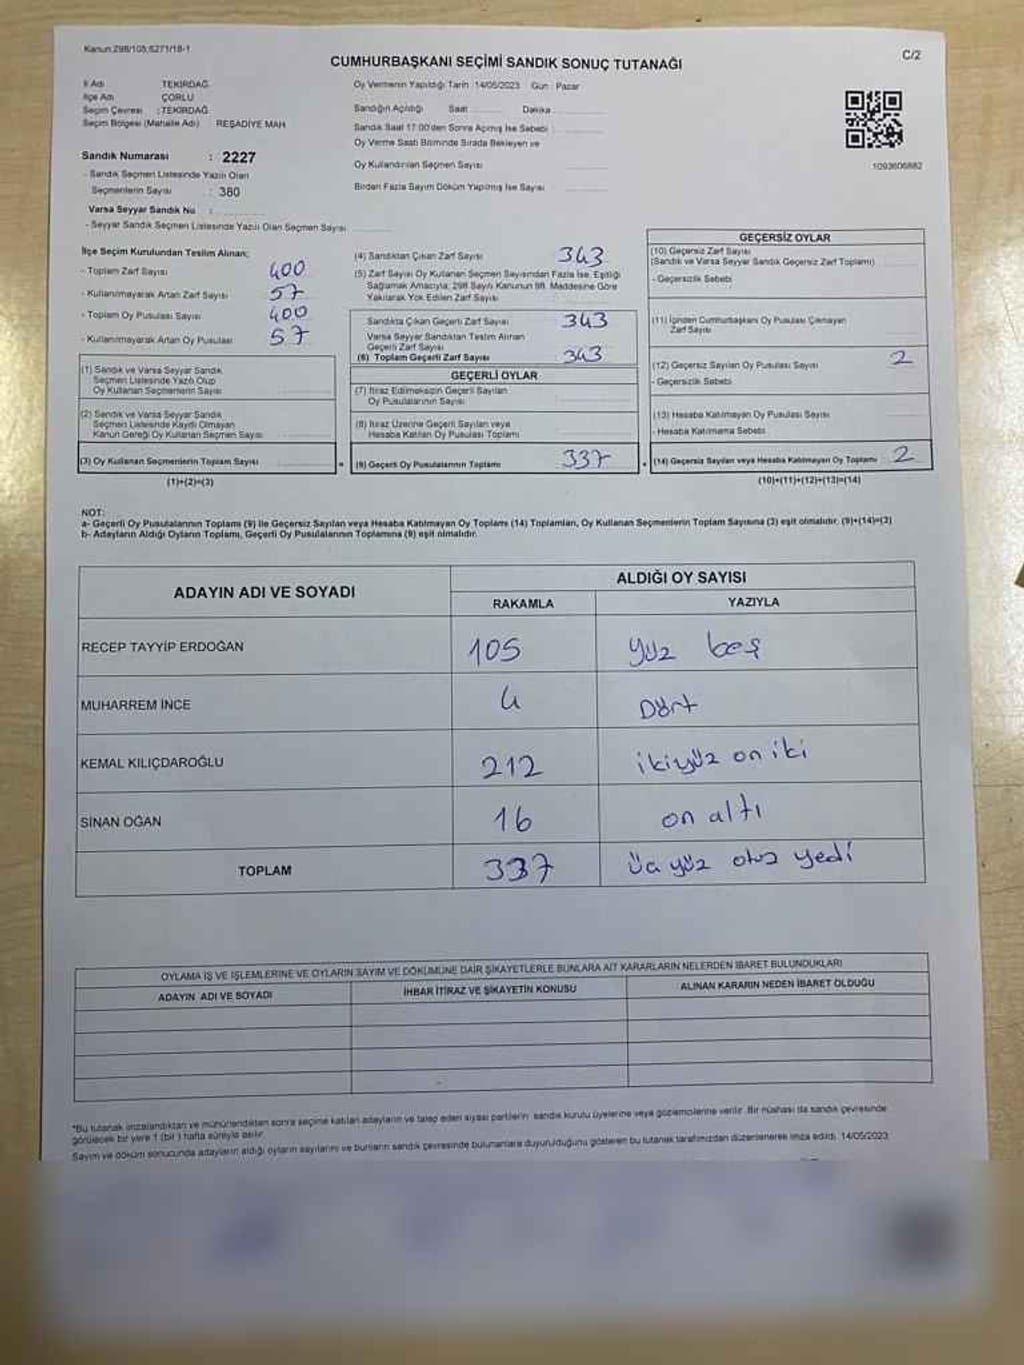 Kanun:298/105,6271/18-1
C/2
CUMHURBAŞKANI SEÇİMİ SANDIK SONUÇ TUTANAĞI
İl Adı TEKİRDAĞ
İlçe Adı ÇORLU
Seçim Çevresi : TEKİRDAĞ
Seçim Bölgesi (Mahalle Adı) REŞADİYE MAH
Oy Vermenin Yapıldığı Tarih 14/05/2023 Gün : Pazar
Sandığın Açıldığı Saat Dakika
Sandık Saat 17:00'den Sonra Açılmış İse Sebebi
Oy Verme Saati Bitiminde Sırada Bekleyen ve
Oy Kullandırılan Seçmen Sayısı
Birden Fazla Sayım Döküm Yapılmış İse Sayısı
1093606882
Sandık Numarası : 2227
- Sandık Seçmen Listesinde Yazılı Olan
Seçmenlerin Sayısı : 380
Varsa Seyyar Sandık No :
- Seyyar Sandık Seçmen Listesinde Yazılı Olan Seçmen Sayısı
İlçe Seçim Kurulundan Teslim Alınan;
- Toplam Zarf Sayısı 400
- Kullanılmayarak Artan Zarf Sayısı 57
- Toplam Oy Pusulası Sayısı 400
- Kullanılmayarak Artan Oy Pusulası 57
(1) Sandık ve Varsa Seyyar Sandık
Seçmen Listesinde Yazılı Olup
Oy Kullanan Seçmenlerin Sayısı
(2) Sandık ve Varsa Seyyar Sandık
Seçmen Listesinde Kaydı Olmayan
Kanun Gereği Oy Kullanan Seçmen Sayısı
(3) Oy Kullanan Seçmenlerin Toplam Sayısı
(1)+(2)=(3)
(4) Sandıktan Çıkan Zarf Sayısı 343
(5) Zarf Sayısı Oy Kullanan Seçmen Sayısından Fazla İse, Eşitliği
Sağlamak Amacıyla; 298 Sayılı Kanunun 98. Maddesine Göre
Yakılarak Yok Edilen Zarf Sayısı
Sandıkta Çıkan Geçerli Zarf Sayısı 343
Varsa Seyyar Sandıktan Teslim Alınan
Geçerli Zarf Sayısı
(6) Toplam Geçerli Zarf Sayısı 343
GEÇERLİ OYLAR
(7) İtiraz Edilmeksizin Geçerli Sayılan
Oy Pusulalarının Sayısı
(8) İtiraz Üzerine Geçerli Sayılan veya
Hesaba Katılan Oy Pusulası Toplamı
= (9) Geçerli Oy Pusulalarının Toplamı 337
GEÇERSİZ OYLAR
(10) Geçersiz Zarf Sayısı
(Sandık ve Varsa Seyyar Sandık Geçersiz Zarf Toplamı)
- Geçersizlik Sebebi
(11) İçinden Cumhurbaşkanı Oy Pusulası Çıkmayan
Zarf Sayısı
(12) Geçersiz Sayılan Oy Pusulası Sayısı 2
- Geçersizlik Sebebi
(13) Hesaba Katılmayan Oy Pusulası Sayısı
- Hesaba Katılmama Sebebi
+ (14) Geçersiz Sayılan veya Hesaba Katılmayan Oy Toplamı 2
(10)+(11)+(12)+(13)=(14)
NOT:
a- Geçerli Oy Pusulalarının Toplamı (9) ile Geçersiz Sayılan veya Hesaba Katılmayan Oy Toplamı (14) Toplamları, Oy Kullanan Seçmenlerin Toplam Sayısına (3) eşit olmalıdır. (9)+(14)=(3)
b- Adayların Aldığı Oyların Toplamı, Geçerli Oy Pusulalarının Toplamına (9) eşit olmalıdır.
ADAYIN ADI VE SOYADI ALDIĞI OY SAYISI
RAKAMLA YAZIYLA
RECEP TAYYİP ERDOĞAN 105 yüz beş
MUHARREM İNCE 4 Dört
KEMAL KILIÇDAROĞLU 212 ikiyüz on iki
SİNAN OĞAN 16 on altı
TOPLAM 337 üç yüz otuz yedi
OYLAMA İŞ VE İŞLEMLERİNE VE OYLARIN SAYIM VE DÖKÜMÜNE DAİR ŞİKAYETLERLE BUNLARA AİT KARARLARIN NELERDEN İBARET BULUNDUKLARI
ADAYIN ADI VE SOYADI İHBAR İTİRAZ VE ŞİKAYETİN KONUSU ALINAN KARARIN NEDEN İBARET OLDUĞU
*Bu tutanak imzalandıktan ve mühürlendikten sonra seçime katılan adayların ve talep eden siyasi partilerin sandık kurulu üyelerine veya gözlemcilerine verilir. Bir nüshası da sandık çevresinde
görülecek bir yere 1 (bir) hafta süreyle asılır.
Sayım ve döküm sonucunda adayların aldığı oyların sayılarını ve bunların sandık çevresinde bulunanlara duyurulduğunu gösteren bu tutanak tarafımızdan düzenlenerek imza edildi. 14/05/2023